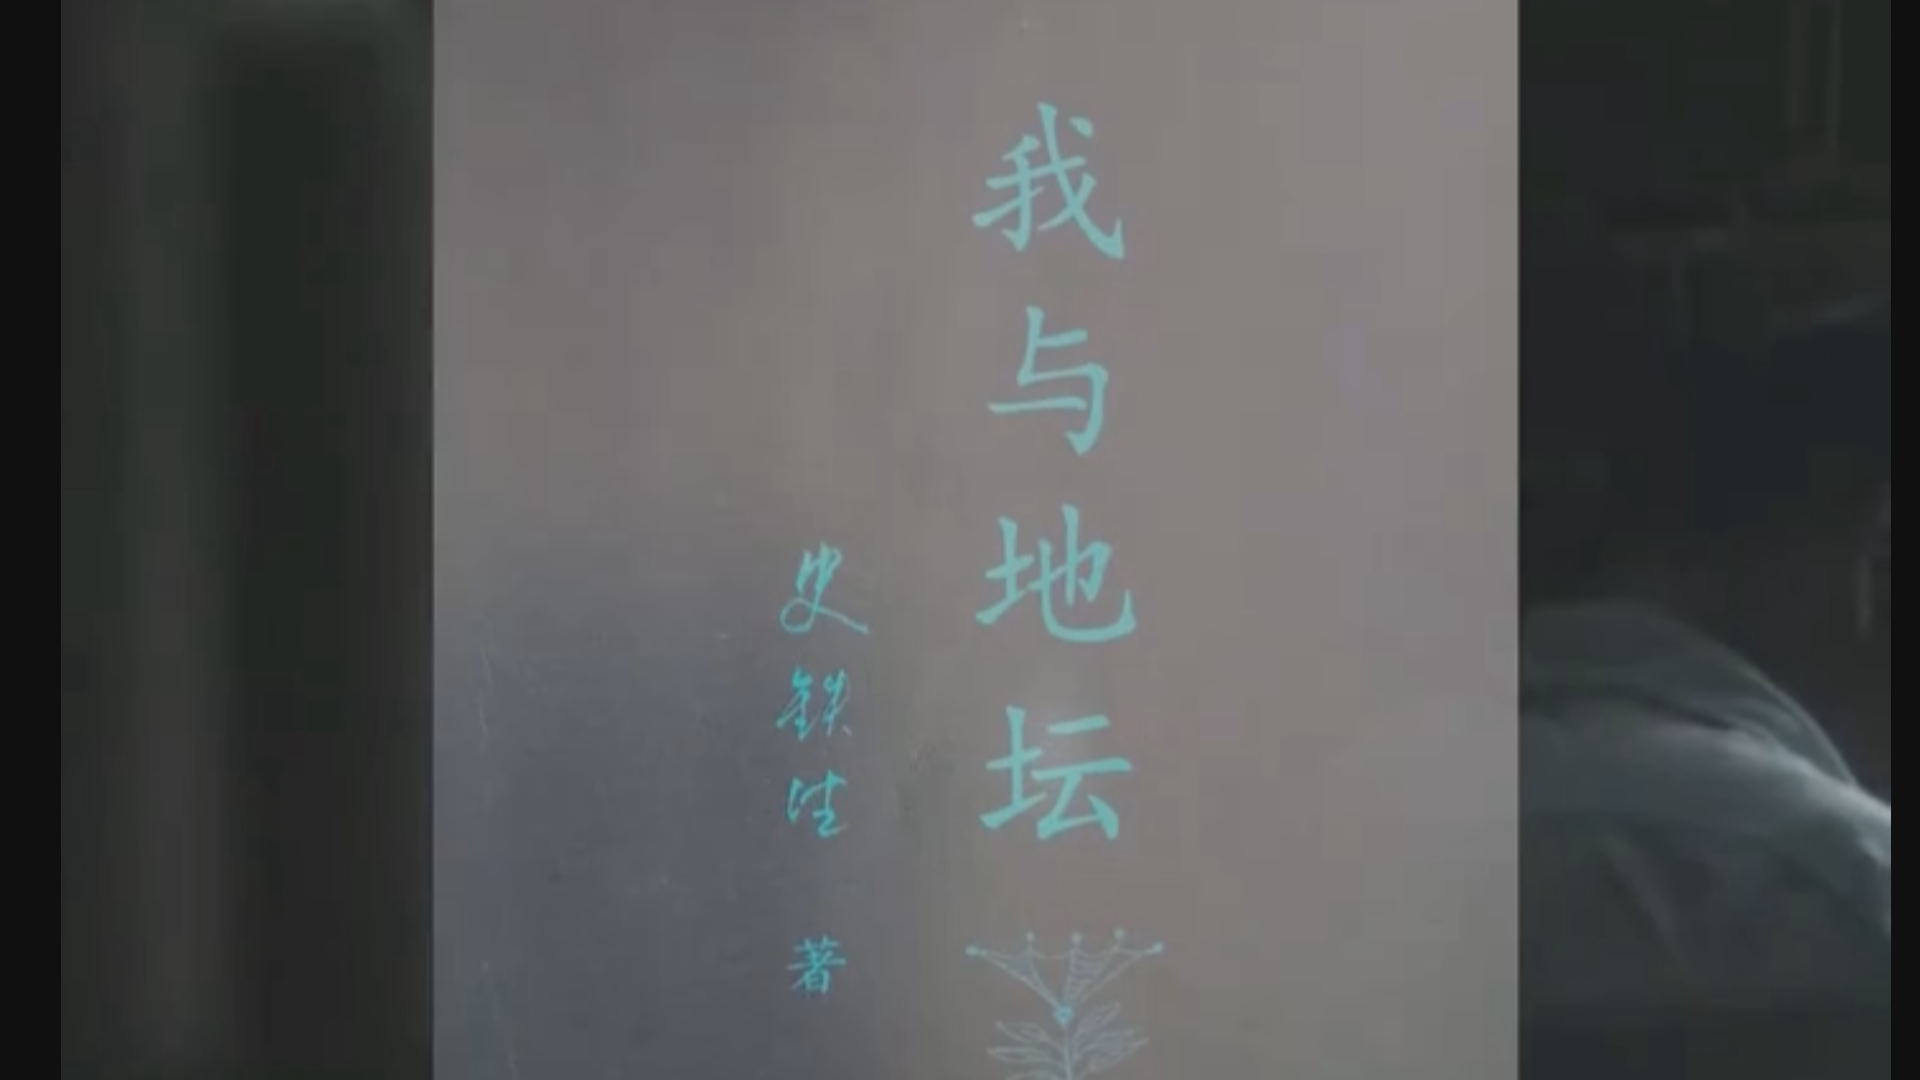 我与地坛
史鐵生 著